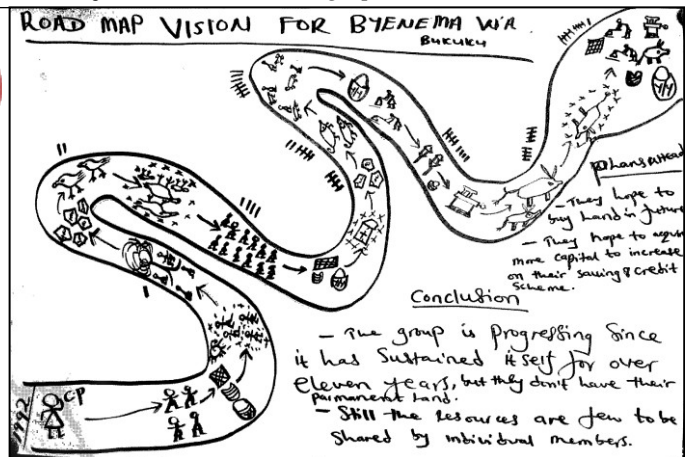 ROAD MAP VISION FOR BYENEMA W/A
BUKUKU
Plans Ahead
- They hope to
buy Land in future
- They hope to acquire
more capital to increase
on their saving & credit
Scheme.
Conclusion
- The group is Progressing Since
it has Sustained itself for over
eleven years, but they don't have their
parmanent Land.
- Still the Resources are few to be
Shared by individual members.
CP
1992